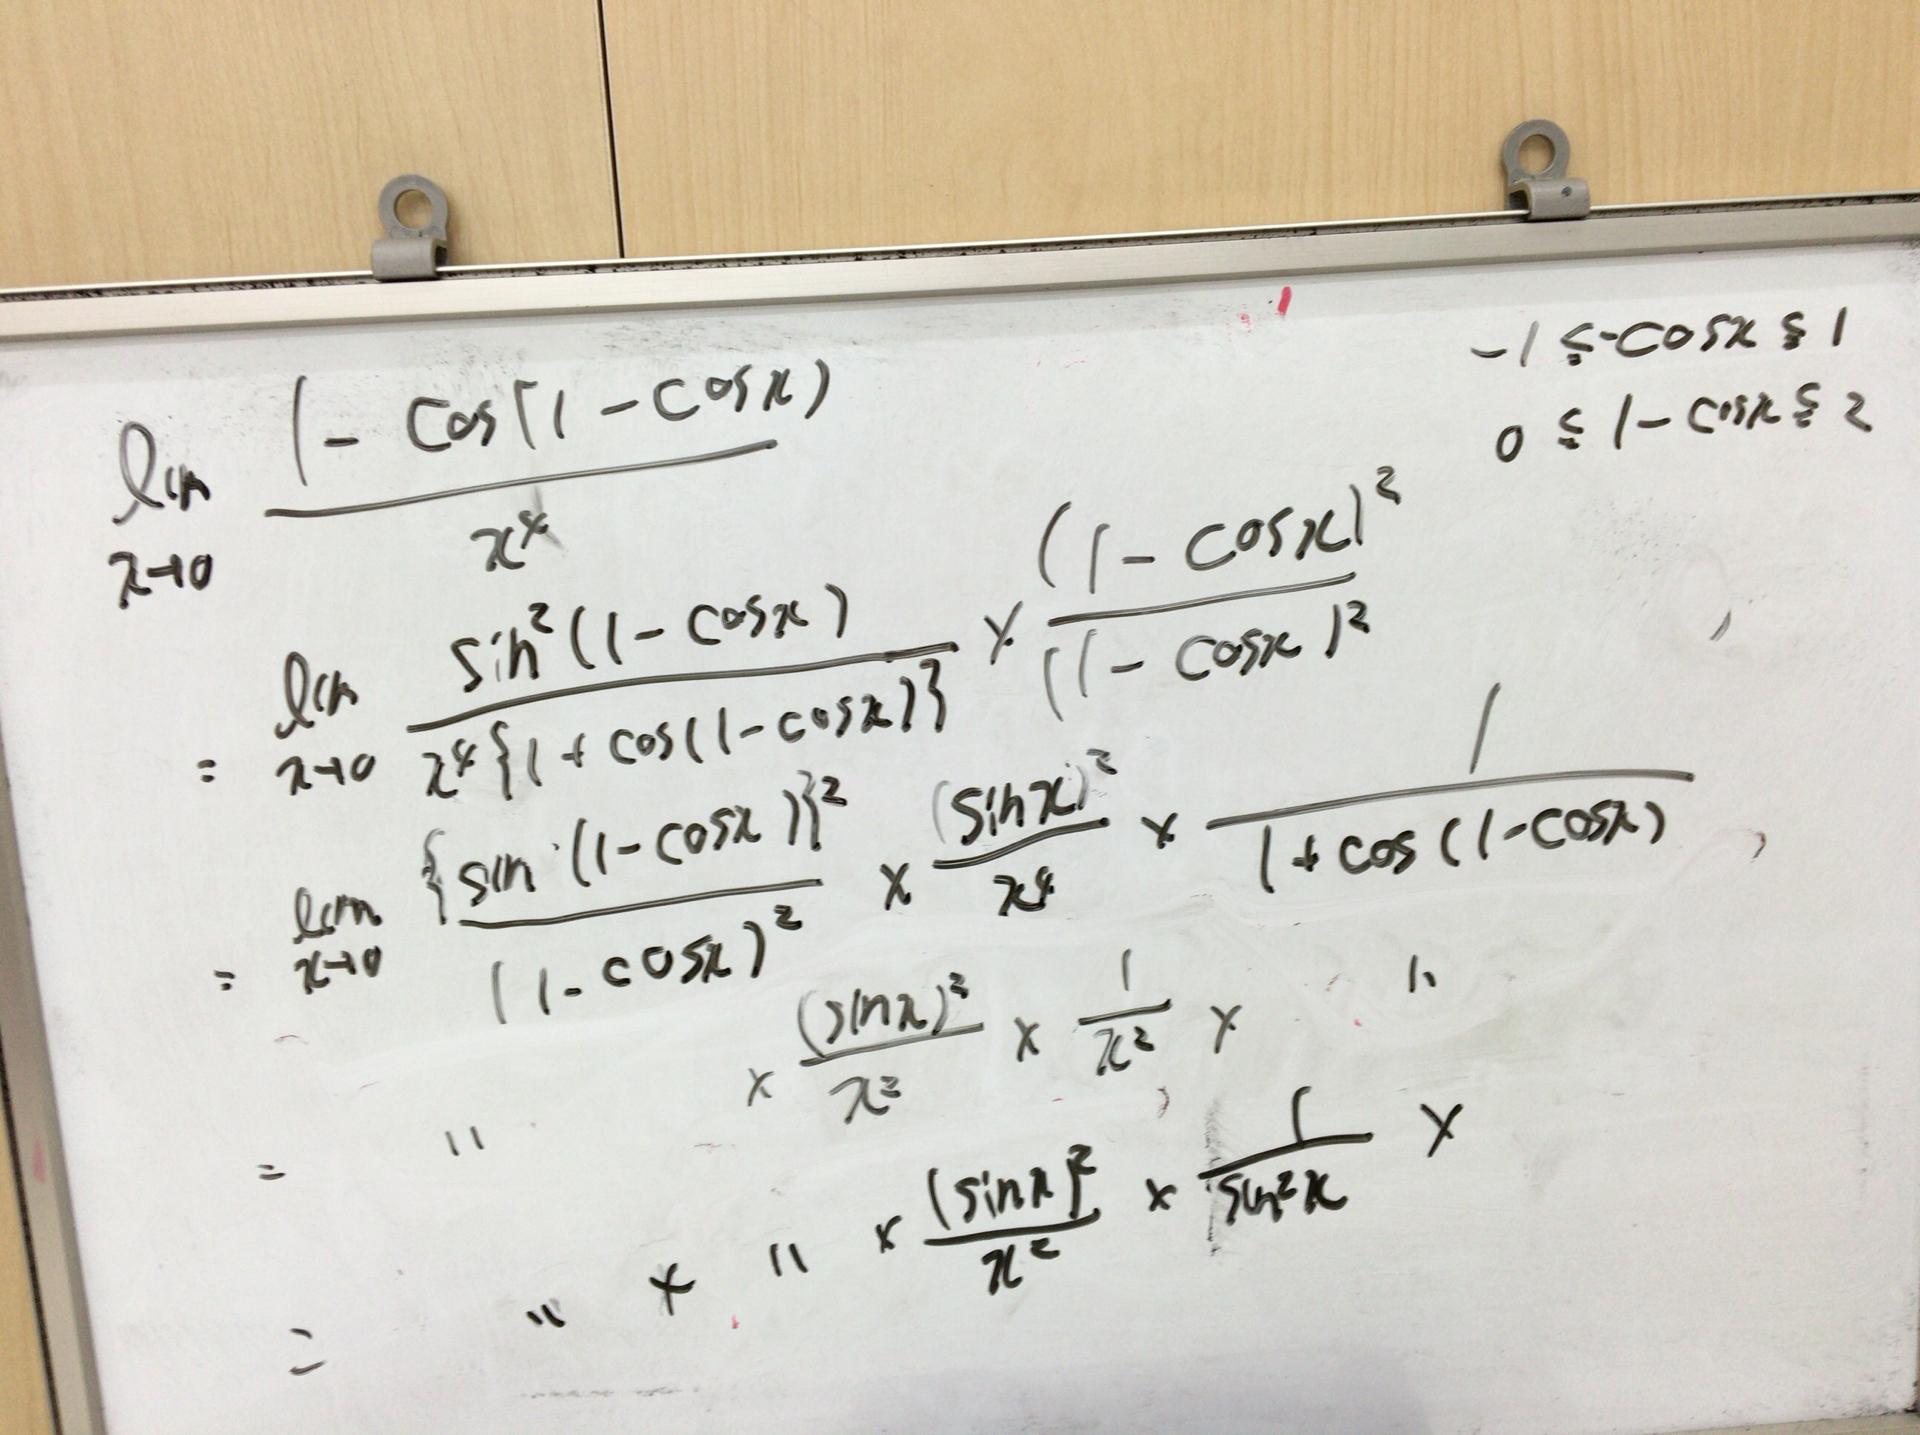 lim x→0 (1 - cos(1 - cosx)) / x⁴
-1 ≦ -cosx ≦ 1
0 ≦ 1 - cosx ≦ 2
= lim x→0 sin²(1 - cosx) / x⁴{1 + cos(1 - cosx)} × (1 - cosx)² / (1 - cosx)²
= lim x→0 {sin(1 - cosx)}² / (1 - cosx)² × (sinx)² / x⁴ × 1 / 1 + cos(1 - cosx)
= 〃 × (sinx)² / x² × 1 / x² × 〃
= 〃 × 〃 × (sinx)² / x² × 1 / sin²x ×